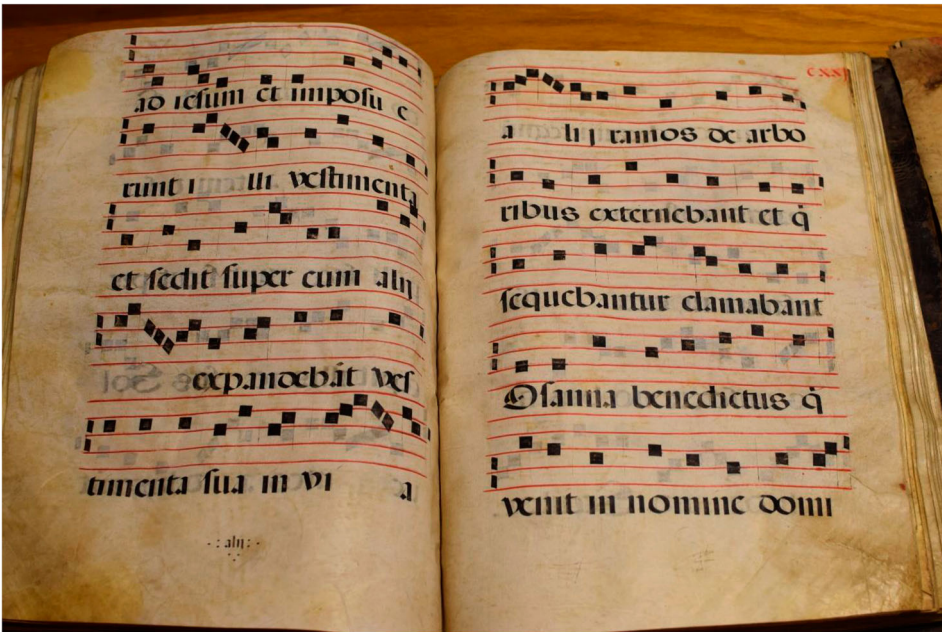 ad iesum et imposu e
runt i lli vestimenta
et sedit super eum alij
expandebāt ves
timenta sua in vi a
- : alij : -
CXXI
a lij ramos de arbo
ribus externebant et q̇
sequebantur clamabant
Osanna benedictus q̇
venit in nomine domi